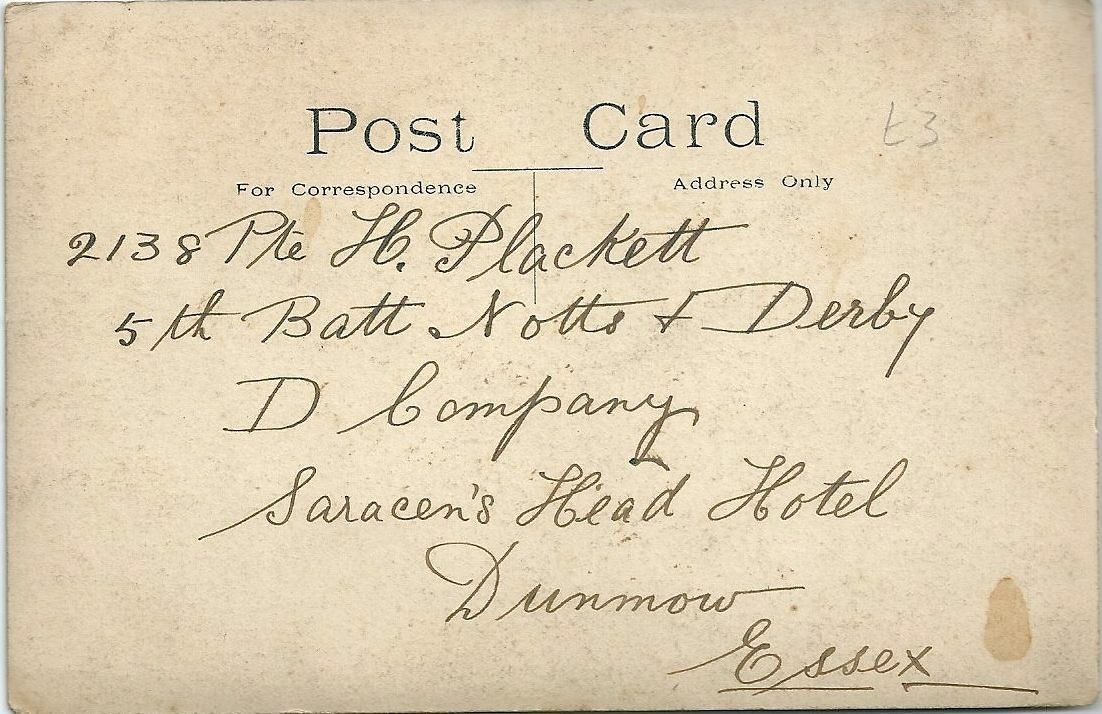 Post Card
£3
For Correspondence
Address Only
2138 Pte H. Plackett
5th Batt Notts & Derby
D Company
Saracen's Head Hotel
Dunmow
Essex